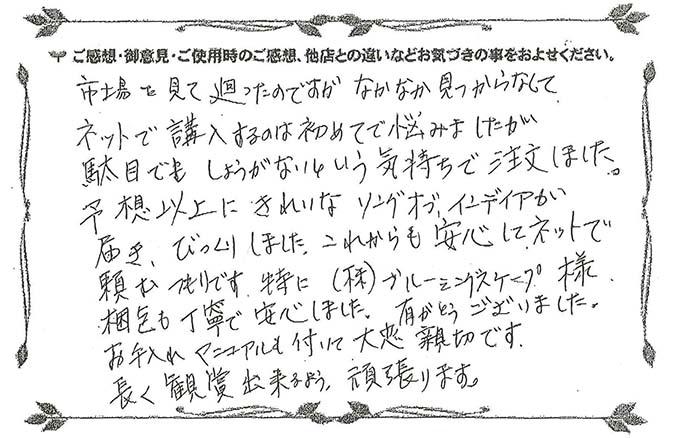 ご感想・御意見・ご使用時のご感想、他店との違いなどお気づきの事をおよせください。
市場を見て廻ったのですが なかなか見つからなくて
ネットで講入するのは初めてで悩みましたが
駄目でも しょうがないという気持ちで注文しました。
予想以上に きれいな ソングオブ、インデイアが
届き、びっくりしました。これからも安心してネットで
頼むつもりです。特に (株)ブルーミングスケープ 様
梱包も丁寧で 安心しました。有がとう ございました。
お手入れ マニュアルも付いて 大変 親切です。
長く観賞出来るよう、頑張ります。